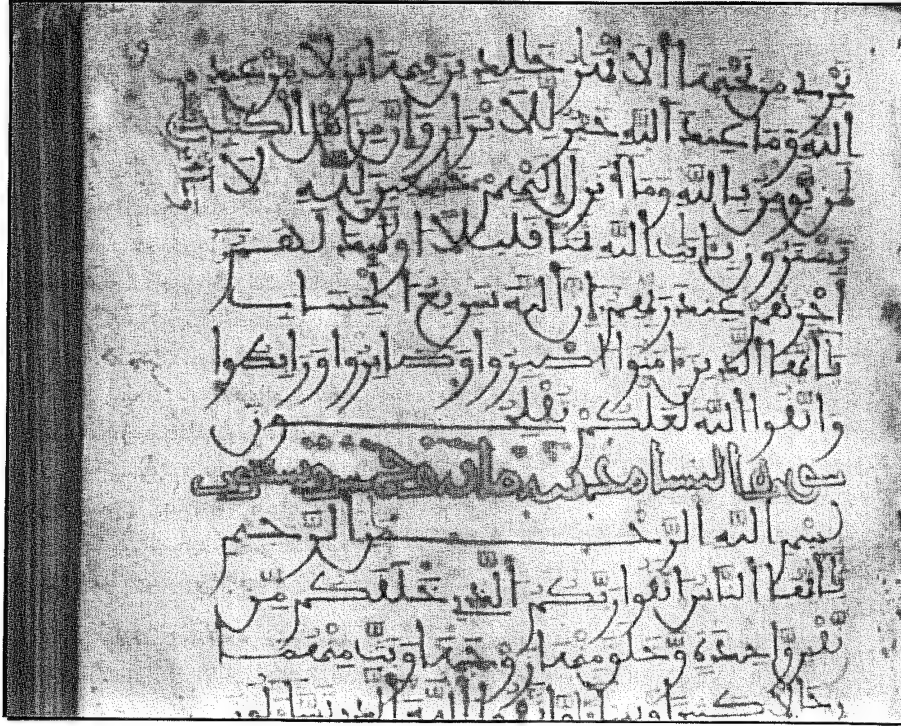 تجرى من تحتها الانهر خلدين فيها نزلا من عند
الله وما عند الله خير للابرار وان من اهل الكتب
لمن يومن بالله وما انزل خشعين لله لا
يشترون بايت الله ثمنا قليلا اوليك لهم
اجرهم عند ربهم ان الله سريع الحساب
يايها الذين امنوا اصبروا وصابروا ورابطوا
واتقوا الله لعلكم تفلحون
سورة النسا مدنية مائة
بسم الله الرحمن الرحيم
يايها الناس اتقوا ربكم الذى خلقكم من
نفس واحدة وخلق منها زوجها وبث منهما
رجالا كثيرا ونسا واتقوا الله الذى تسالون